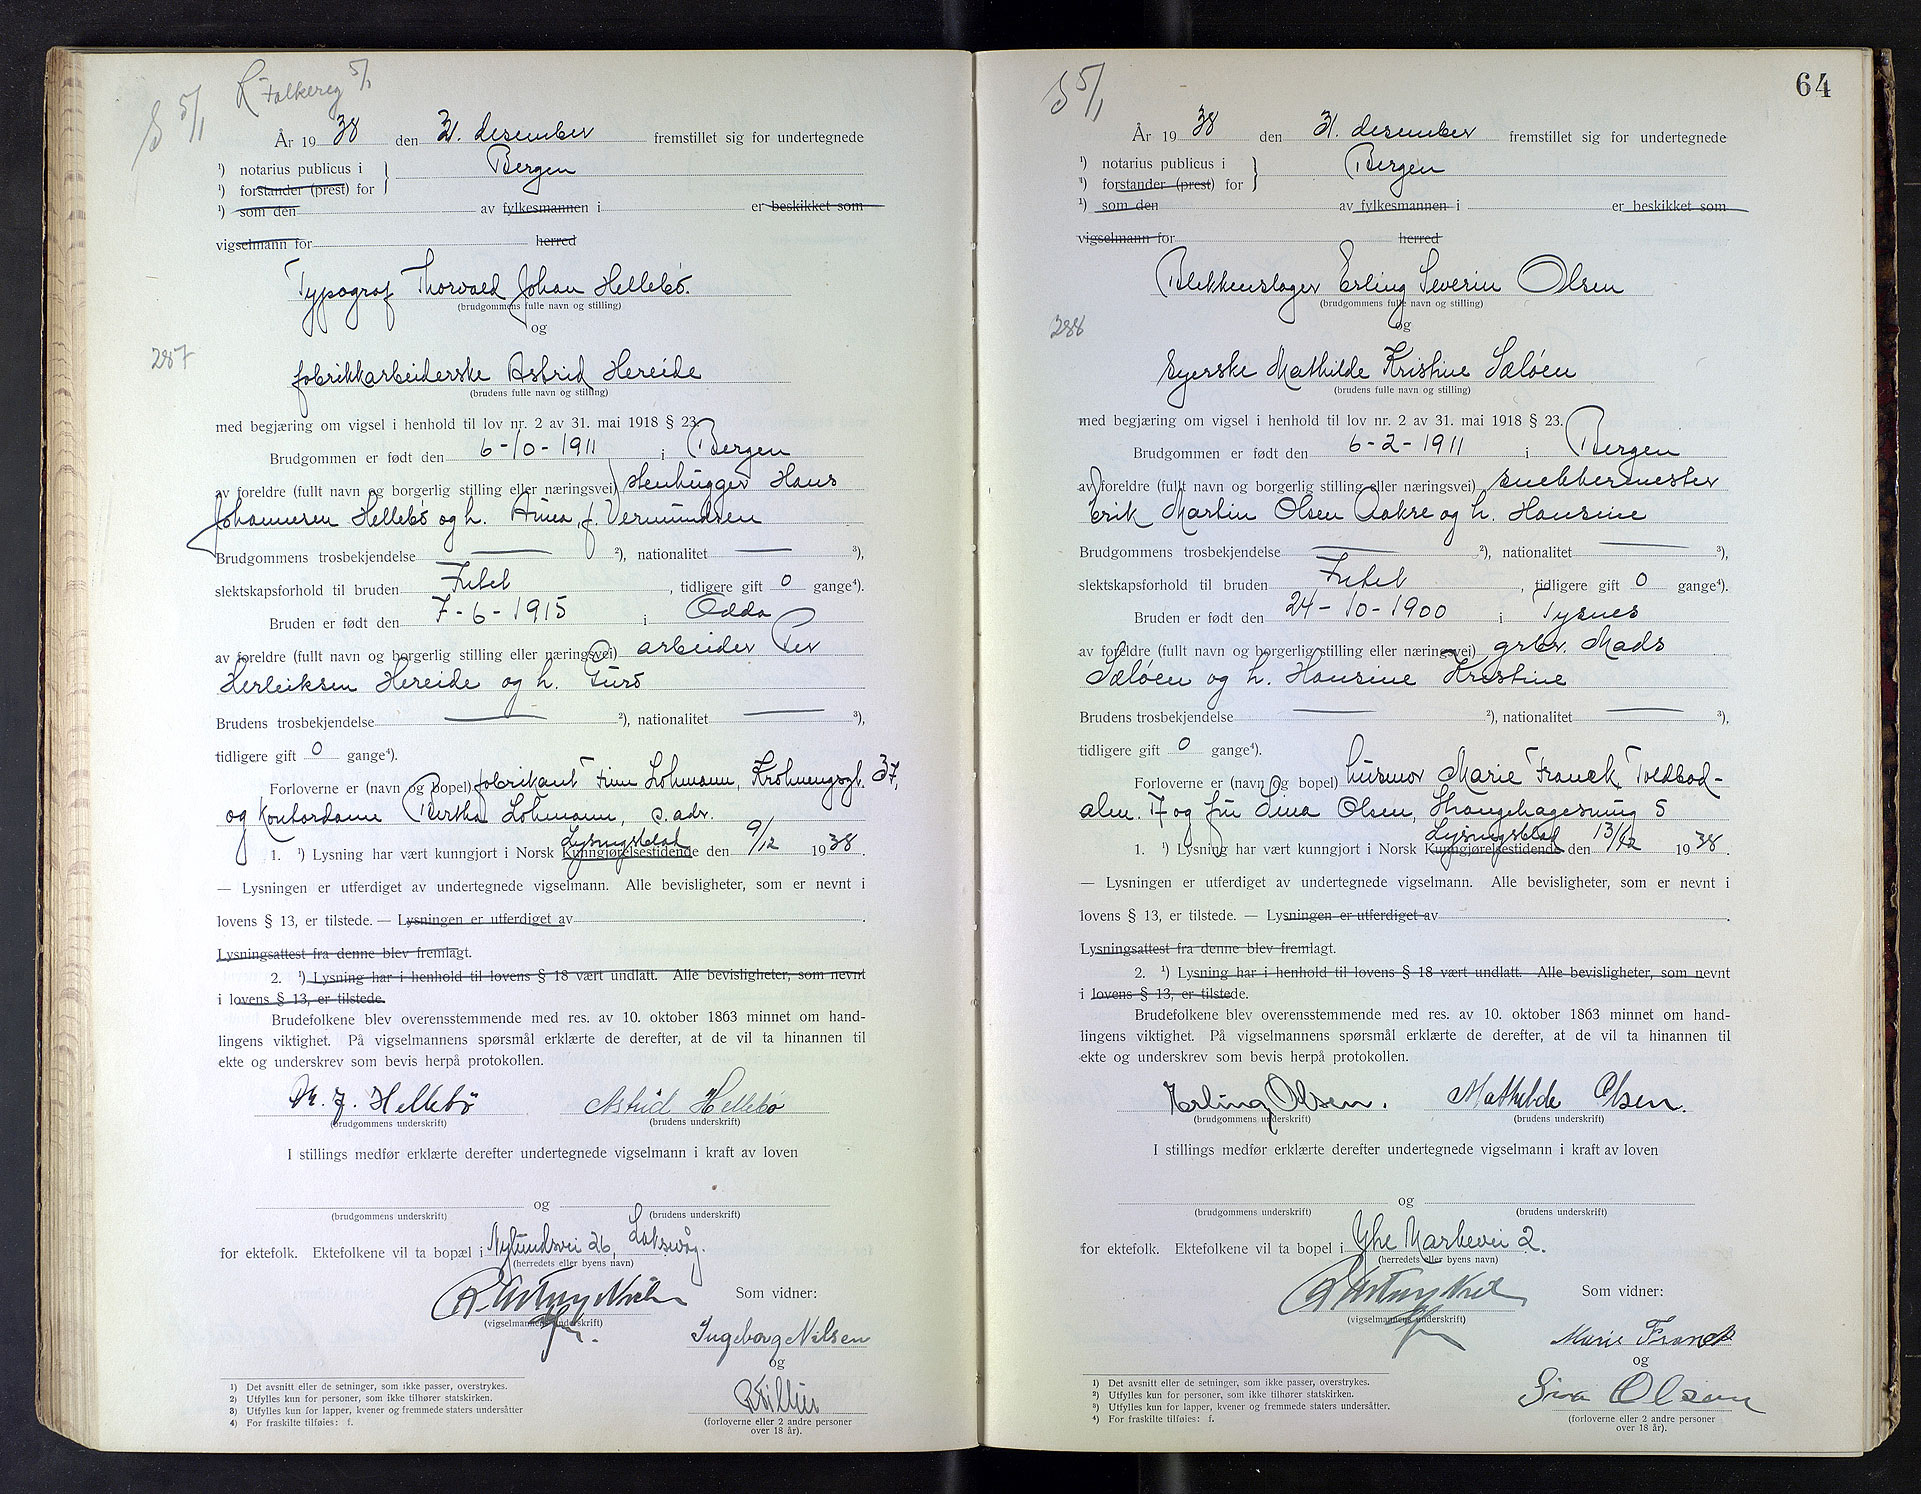 S 5/1
R Folkereg 5/1
År 1938 den 31. desember fremstillet sig for undertegnede
¹) notarius publicus i
Bergen
¹) forstander (prest) for
¹) som den av fylkesmannen i er beskikket som
vigselmann for herred
Typograf Thorvald Johan Hellebø.
(brudgommens fulle navn og stilling)
og
287
fabrikkarbeiderske Astrid Hereide
(brudens fulle navn og stilling)
med begjæring om vigsel i henhold til lov nr. 2 av 31. mai 1918 § 23.
Brudgommen er født den 6-10-1911 i Bergen
av foreldre (fullt navn og borgerlig stilling eller næringsvei) stenhugger Hans
Johannesen Hellebø og h. Anna f. Vermundsen
Brudgommens trosbekjendelse — ²), nationalitet — ³),
slektskapsforhold til bruden Intet, tidligere gift 0 gange⁴).
Bruden er født den 7-6-1915 i Odda
av foreldre (fullt navn og borgerlig stilling eller næringsvei) arbeider Per
Herleiksen Hereide og h. Guro
Brudens trosbekjendelse — ²), nationalitet — ³),
tidligere gift 0 gange⁴).
Forloverne er (navn og bopel) fabrikant Finn Lohmann, Krohnengsgt. 37,
og kontordame Bertha Lohmann, s. adr.
Lysningsblad
1. ¹) Lysning har vært kunngjort i Norsk Kunngjørelsestidende den 9/12 1938.
— Lysningen er utferdiget av undertegnede vigselmann. Alle bevisligheter, som er nevnt i
lovens § 13, er tilstede. — Lysningen er utferdiget av .
Lysningsattest fra denne blev fremlagt.
2. ¹) Lysning har i henhold til lovens § 18 vært undlatt. Alle bevisligheter, som nevnt
i lovens § 13, er tilstede.
Brudefolkene blev overensstemmende med res. av 10. oktober 1863 minnet om hand-
lingens viktighet. På vigselmannens spørsmål erklærte de derefter, at de vil ta hinannen til
ekte og underskrev som bevis herpå protokollen.
Th. J. Hellebø Astrid Hellebø
(brudgommens underskrift) (brudens underskrift)
I stillings medfør erklærte derefter undertegnede vigselmann i kraft av loven
og
(brudgommens underskrift) (brudens underskrift)
for ektefolk. Ektefolkene vil ta bopæl i Nylundsvei 26, Laksevåg.
(herredets eller byens navn)
Som vidner:
(vigselmannens underskrift)
Ingeborg Nilsen
og
(forloverne eller 2 andre personer
over 18 år).
1) Det avsnitt eller de setninger, som ikke passer, overstrykes.
2) Utfylles kun for personer, som ikke tilhører statskirken.
3) Utfylles kun for lapper, kvener og fremmede staters undersåtter
4) For fraskilte tilføies: f.
64
S 5/1
År 1938 den 31. desember fremstillet sig for undertegnede
¹) notarius publicus i
Bergen
¹) forstander (prest) for
¹) som den av fylkesmannen i er beskikket som
vigselmann for herred
Blikkenslager Erling Severin Olsen
(brudgommens fulle navn og stilling)
og
288
Syerske Mathilde Kristine Sæløen
(brudens fulle navn og stilling)
med begjæring om vigsel i henhold til lov nr. 2 av 31. mai 1918 § 23.
Brudgommen er født den 6-2-1911 i Bergen
av foreldre (fullt navn og borgerlig stilling eller næringsvei) snekkermester
Erik Martin Olsen Aakre og h. Hansine
Brudgommens trosbekjendelse — ²), nationalitet — ³),
slektskapsforhold til bruden Intet, tidligere gift 0 gange⁴).
Bruden er født den 24-10-1900 i Tysnes
av foreldre (fullt navn og borgerlig stilling eller næringsvei) grbr. Mads
Sæløen og h. Hansine Kristine
Brudens trosbekjendelse — ²), nationalitet — ³),
tidligere gift 0 gange⁴).
Forloverne er (navn og bopel) husmor Marie Franck, Toldbod-
alm. 7 og fru Sina Olsen, Strangehagesmug 5
Lysningsblad
1. ¹) Lysning har vært kunngjort i Norsk Kunngjørelsestidende den 13/12 1938.
— Lysningen er utferdiget av undertegnede vigselmann. Alle bevisligheter, som er nevnt i
lovens § 13, er tilstede. — Lysningen er utferdiget av .
Lysningsattest fra denne blev fremlagt.
2. ¹) Lysning har i henhold til lovens § 18 vært undlatt. Alle bevisligheter, som nevnt
i lovens § 13, er tilstede.
Brudefolkene blev overensstemmende med res. av 10. oktober 1863 minnet om hand-
lingens viktighet. På vigselmannens spørsmål erklærte de derefter, at de vil ta hinannen til
ekte og underskrev som bevis herpå protokollen.
Erling Olsen. Mathilde Olsen.
(brudgommens underskrift) (brudens underskrift)
I stillings medfør erklærte derefter undertegnede vigselmann i kraft av loven
og
(brudgommens underskrift) (brudens underskrift)
for ektefolk. Ektefolkene vil ta bopel i Yhe Markevei 2.
(herredets eller byens navn)
Som vidner:
(vigselmannens underskrift)
Marie Franck
og
Sina Olsen
(forloverne eller 2 andre personer
over 18 år).
¹) Det avsnitt eller de setninger, som ikke passer, overstrykes.
²) Utfylles kun for personer, som ikke tilhører statskirken.
³) Utfylles kun for lapper, kvener og fremmede staters undersåtter.
⁴) For fraskilte tilføies: f.